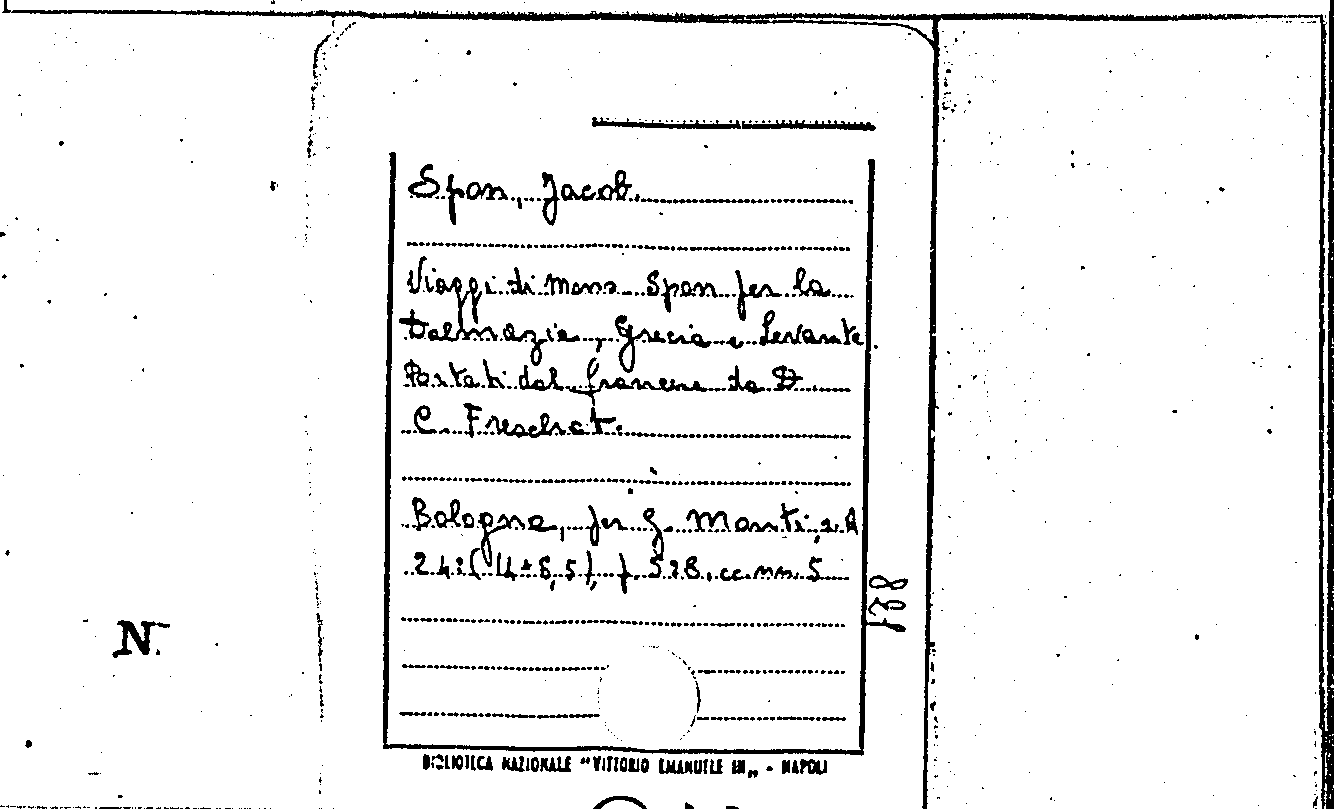 Spon, Jacob.
Viaggi di Mons. Spon per la
Dalmazia, Grecia e Levante
Portati dal francese da D.
C. Freschot.
Bologna, per G. Monti,
24: (14 × 8,5), p. 528, cc nn. 5
N.
BIBLIOTECA NAZIONALE "VITTORIO EMANUELE III„ - NAPOLI